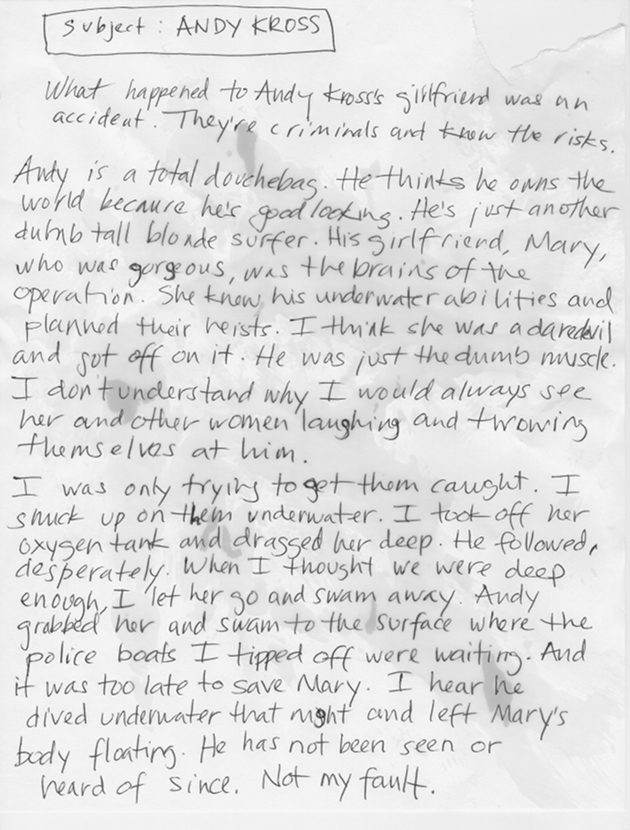 Subject: ANDY KROSS
What happened to Andy Kross's girlfriend was an
accident. They're criminals and know the risks.
Andy is a total douchebag. He thinks he owns the
world because he's good looking. He's just another
dumb tall blonde surfer. His girlfriend, Mary,
who was gorgeous, was the brains of the
operation. She knew his underwater abilities and
planned their heists. I think she was a daredevil
and got off on it. He was just the dumb muscle.
I don't understand why I would always see
her and other women laughing and throwing
themselves at him.
I was only trying to get them caught. I
snuck up on them underwater. I took off her
oxygen tank and dragged her deep. He followed,
desperately. When I thought we were deep
enough, I let her go and swam away. Andy
grabbed her and swam to the surface where the
police boats I tipped off were waiting. And
it was too late to save Mary. I hear he
dived underwater that night and left Mary's
body floating. He has not been seen or
heard of since. Not my fault.